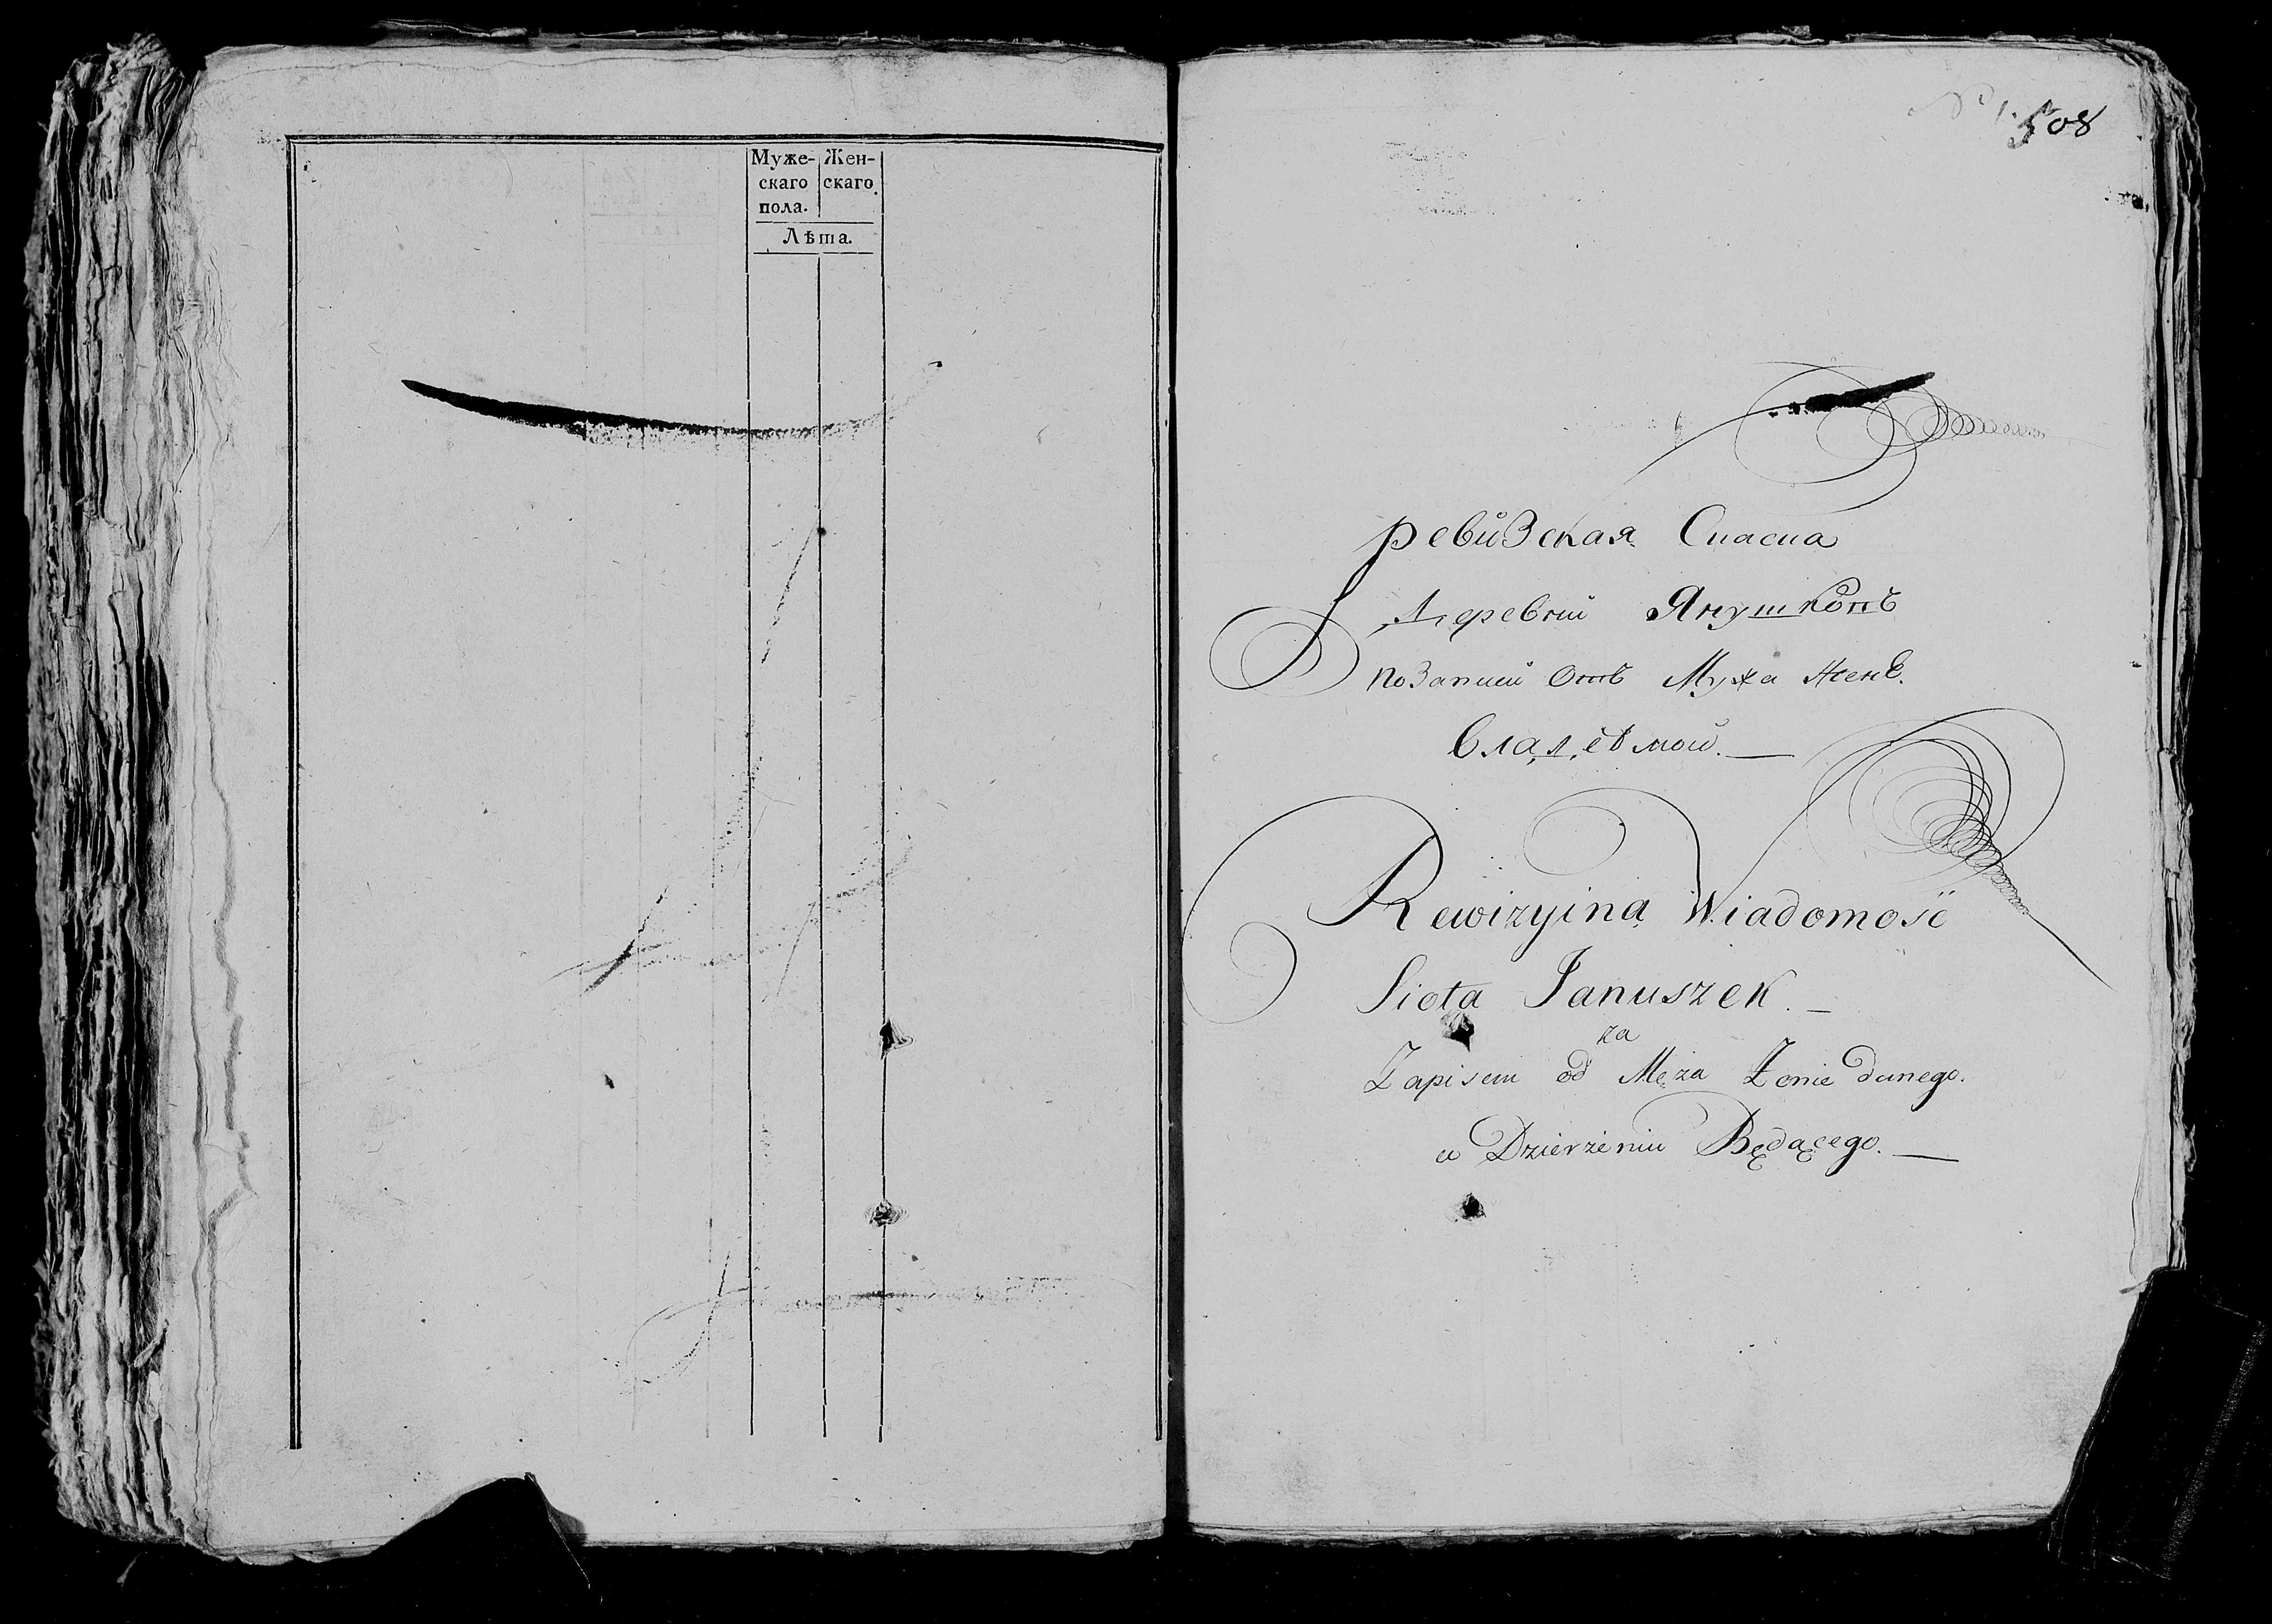 Муже- Жен-
скаго скаго
пола.
Лѣта.
508
ревизская Спаска
Деревни Янушковъ
по Записи Отъ Мужа Женѣ
владѣемой.
Rewizyina Wiadomość
Sioła Januszek.
za
Zapisem od Męża Żonie danego.
w Dzierżeniu Będącego.